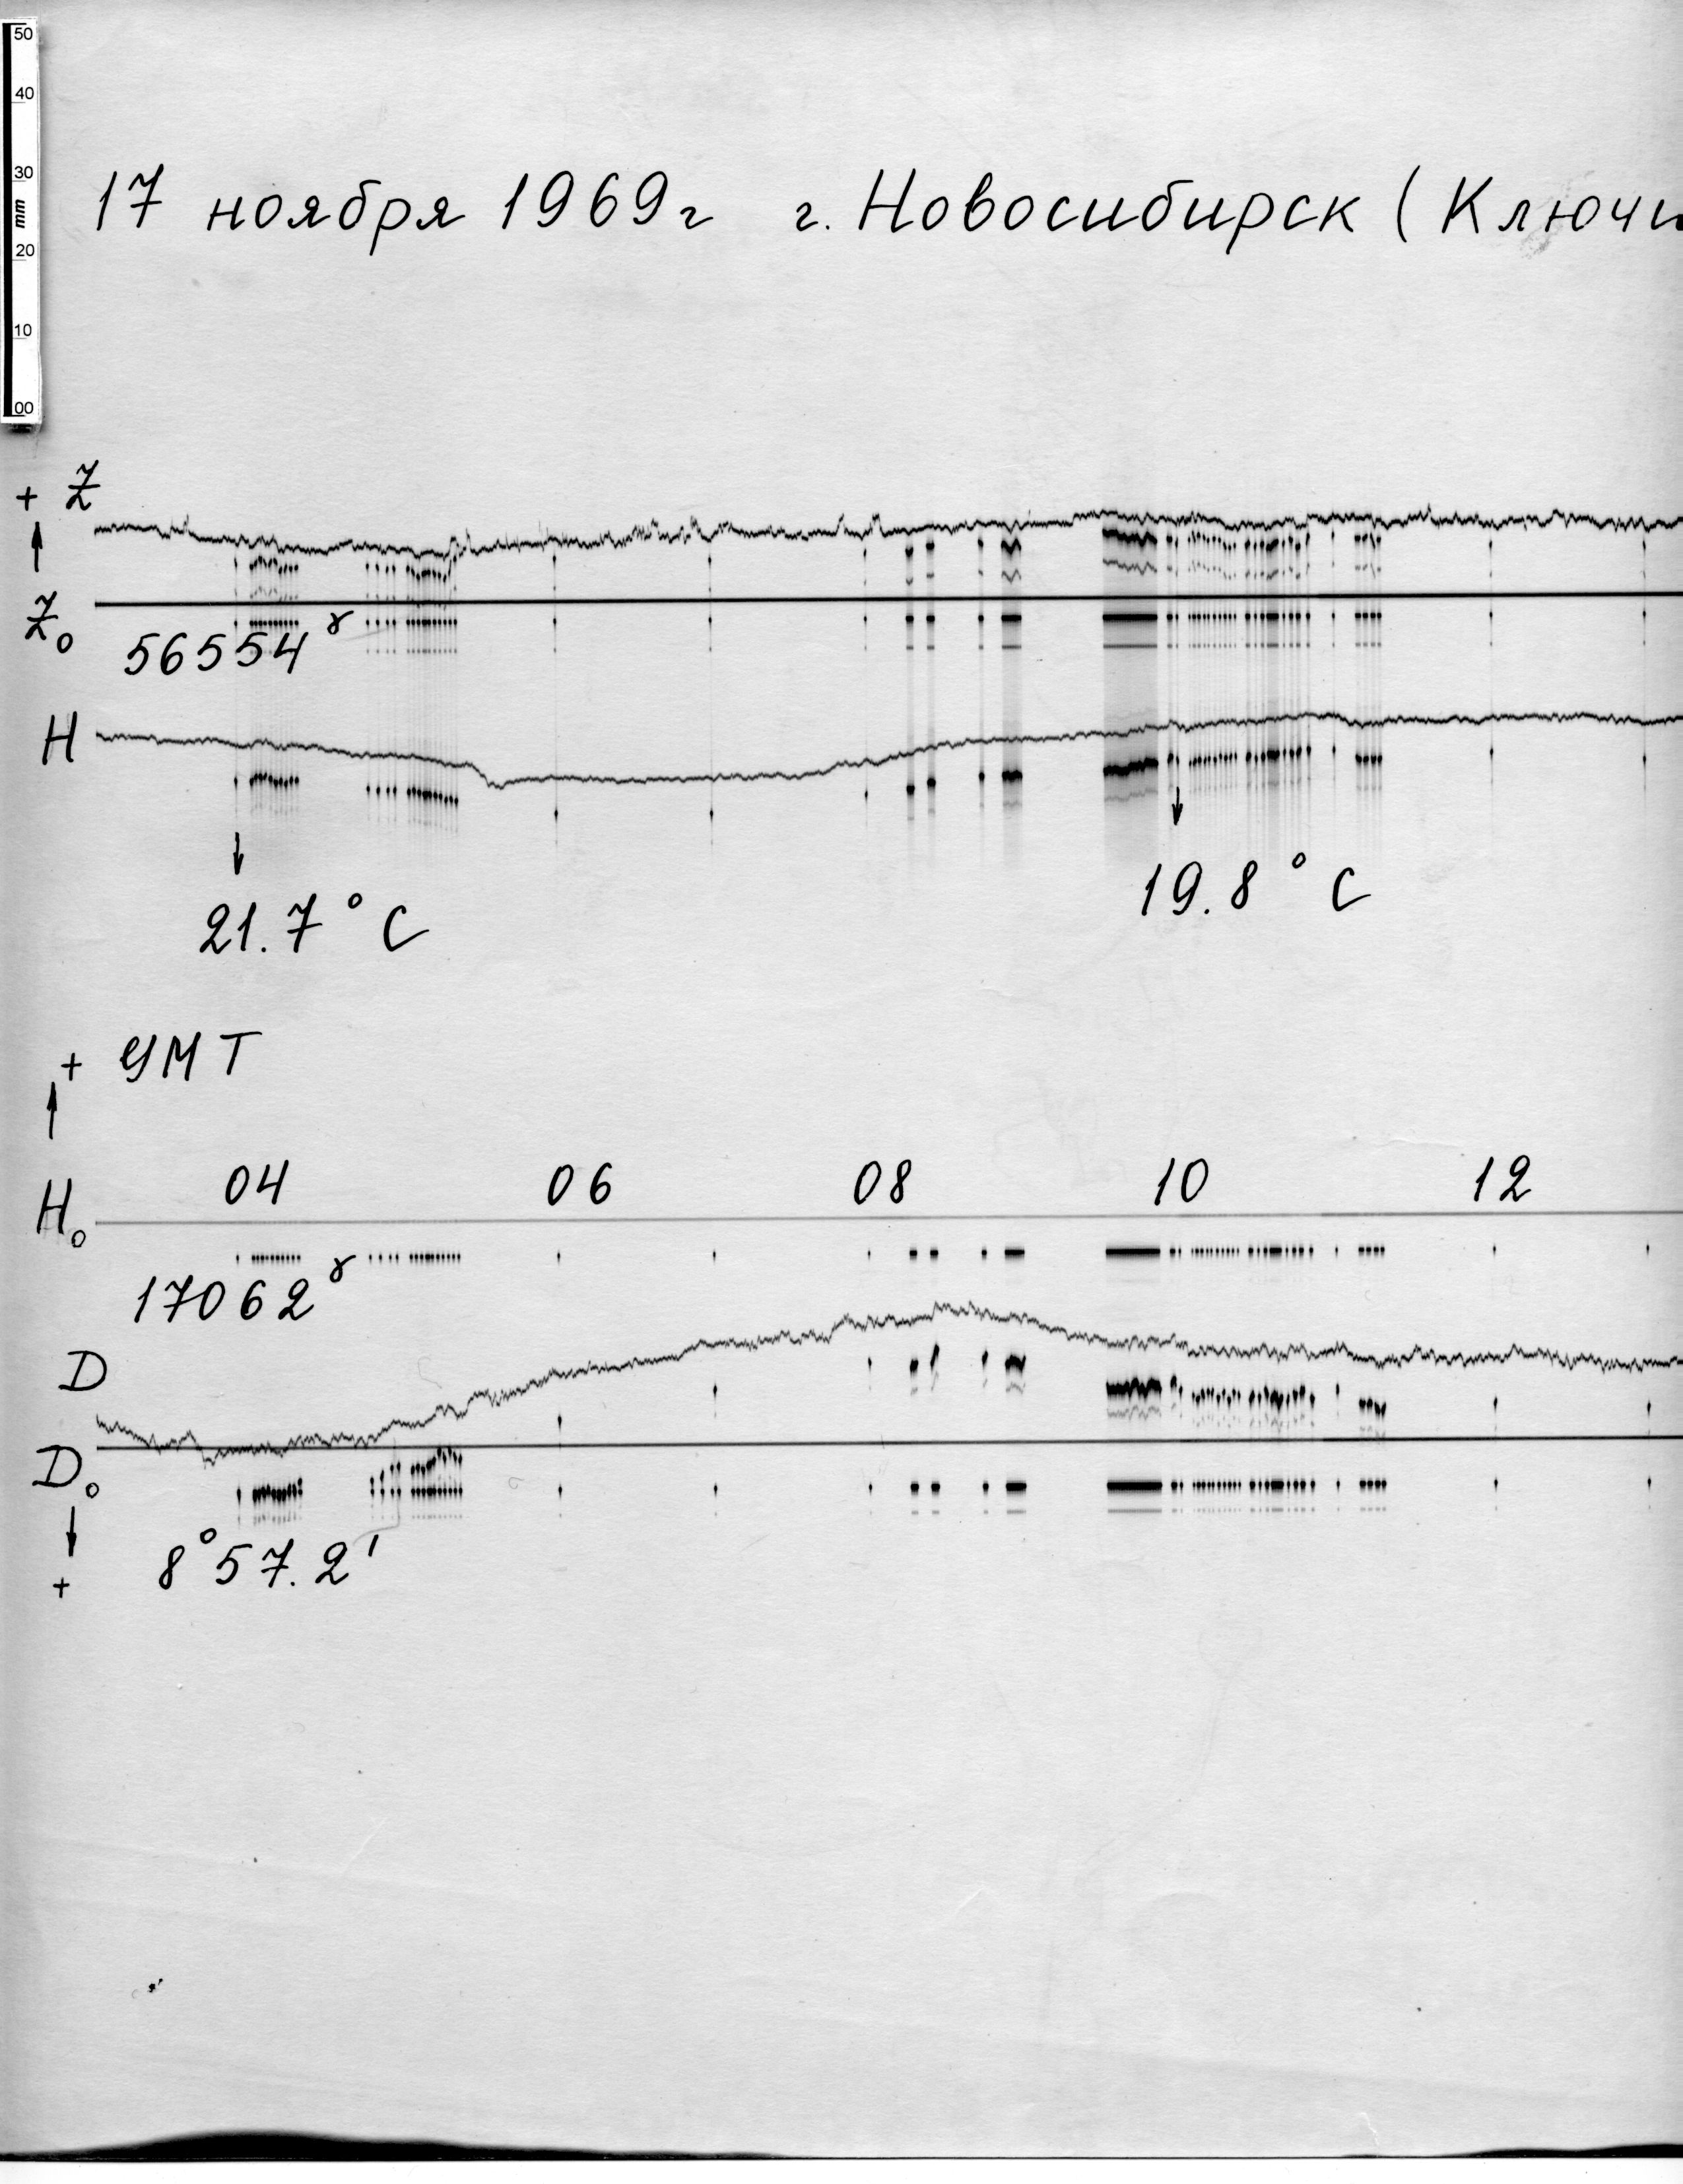 50
40
30
mm
20
10
00
17 ноября 1969г г. Новосибирск (Ключи
+ Z
Z₀
56554ᵞ
H
21.7°C
19.8°C
+ УМТ
04 06 08 10 12
H₀
17062ᵞ
D
D₀
8°57.2'
+